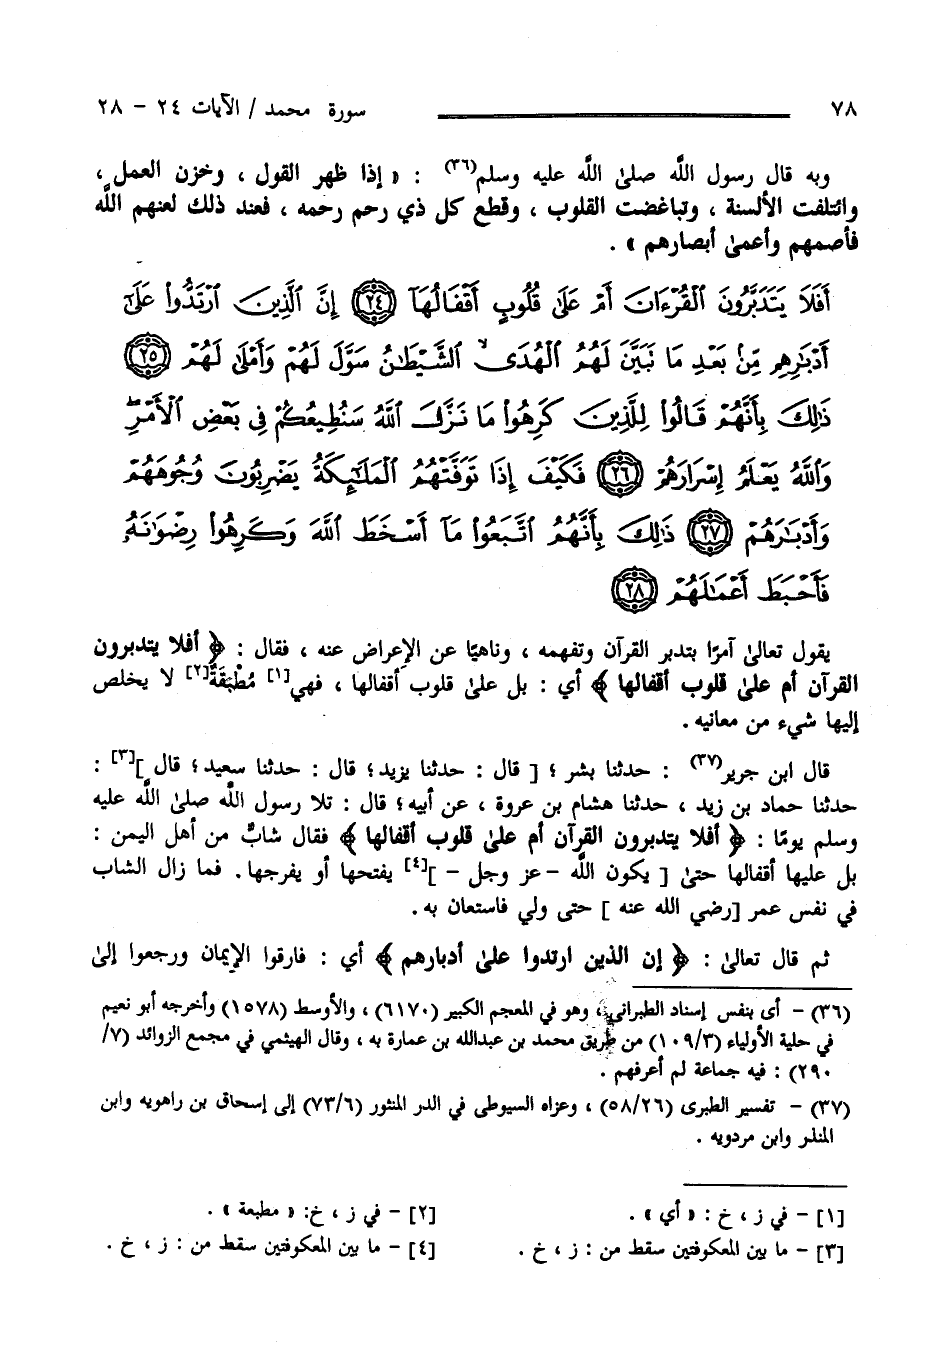 ٧٨ سورة محمد / الآيات ٢٤ - ٢٨
وبه قال رسول اللَّه صلىٰ اللَّه عليه وسلم(٣٦) : « إذا ظهر القول ، وخزن العمل ،
وائتلفت الألسنة ، وتباغضت القلوب ، وقطع كل ذي رحم رحمه ، فعند ذلك لعنهم اللَّه
فأصمهم وأعمىٰ أبصارهم » .
أَفَلَا يَتَدَبَّرُونَ ٱلْقُرْءَانَ أَمْ عَلَىٰ قُلُوبٍ أَقْفَالُهَآ ٢٤ إِنَّ ٱلَّذِينَ ٱرْتَدُّوا۟ عَلَىٰٓ
أَدْبَٰرِهِم مِّنۢ بَعْدِ مَا تَبَيَّنَ لَهُمُ ٱلْهُدَى ۙ ٱلشَّيْطَٰنُ سَوَّلَ لَهُمْ وَأَمْلَىٰ لَهُمْ ٢٥
ذَٰلِكَ بِأَنَّهُمْ قَالُوا۟ لِلَّذِينَ كَرِهُوا۟ مَا نَزَّلَ ٱللَّهُ سَنُطِيعُكُمْ فِى بَعْضِ ٱلْأَمْرِ ۖ
وَٱللَّهُ يَعْلَمُ إِسْرَارَهُمْ ٢٦ فَكَيْفَ إِذَا تَوَفَّتْهُمُ ٱلْمَلَٰٓئِكَةُ يَضْرِبُونَ وُجُوهَهُمْ
وَأَدْبَٰرَهُمْ ٢٧ ذَٰلِكَ بِأَنَّهُمُ ٱتَّبَعُوا۟ مَآ أَسْخَطَ ٱللَّهَ وَكَرِهُوا۟ رِضْوَٰنَهُۥ
فَأَحْبَطَ أَعْمَٰلَهُمْ ٢٨
يقول تعالىٰ آمرًا بتدبر القرآن وتفهمه ، وناهيًا عن الإعراض عنه ، فقال : ﴿ أفلا يتدبرون
القرآن أم علىٰ قلوب أقفالها ﴾ أي : بل علىٰ قلوب أقفالها ، فهي[١] مُطْبَقَةٌ[٢] لا يخلص
إليها شيء من معانيه .
قال ابن جرير(٣٧) : حدثنا بشر ؛ [ قال : حدثنا يزيد؛ قال : حدثنا سعيد؛ قال ][٣] :
حدثنا حماد بن زيد ، حدثنا هشام بن عروة ، عن أبيه؛ قال : تلا رسول اللَّه صلىٰ اللَّه عليه
وسلم يومًا : ﴿ أفلا يتدبرون القرآن أم علىٰ قلوب أقفالها ﴾ فقال شابٌ من أهل اليمن :
بل عليها أقفالها حتىٰ [ يكون اللَّه -عز وجل - ][٤] يفتحها أو يفرجها. فما زال الشاب
في نفس عمر [رضي الله عنه ] حتى ولي فاستعان به.
ثم قال تعالىٰ : ﴿ إن الذين ارتدوا علىٰ أدبارهم ﴾ أي : فارقوا الإيمان ورجعوا إلىٰ
(٣٦) - أى بنفس إسناد الطبراني، وهو في المعجم الكبير (٦١٧٠) ، والأوسط (١٥٧٨) وأخرجه أبو نعيم
في حلية الأولياء (١٠٩/٣) من طريق محمد بن عبدالله بن عمارة به ، وقال الهيثمي في مجمع الزوائد (٧/
٢٩٠) : فيه جماعة لم أعرفهم .
(٣٧) - تفسير الطبرى (٥٨/٢٦) ، وعزاه السيوطى في الدر المنثور (٧٣/٦) إلى إسحاق بن راهويه وابن
المنذر وابن مردويه .
[١] - في ز ، خ : « أي » . [٢] - في ز ، خ: « مطبعة » .
[٣] - ما بين المعكوفتين سقط من : ز ، خ . [٤] - ما بين المعكوفتين سقط من : ز ، خ .